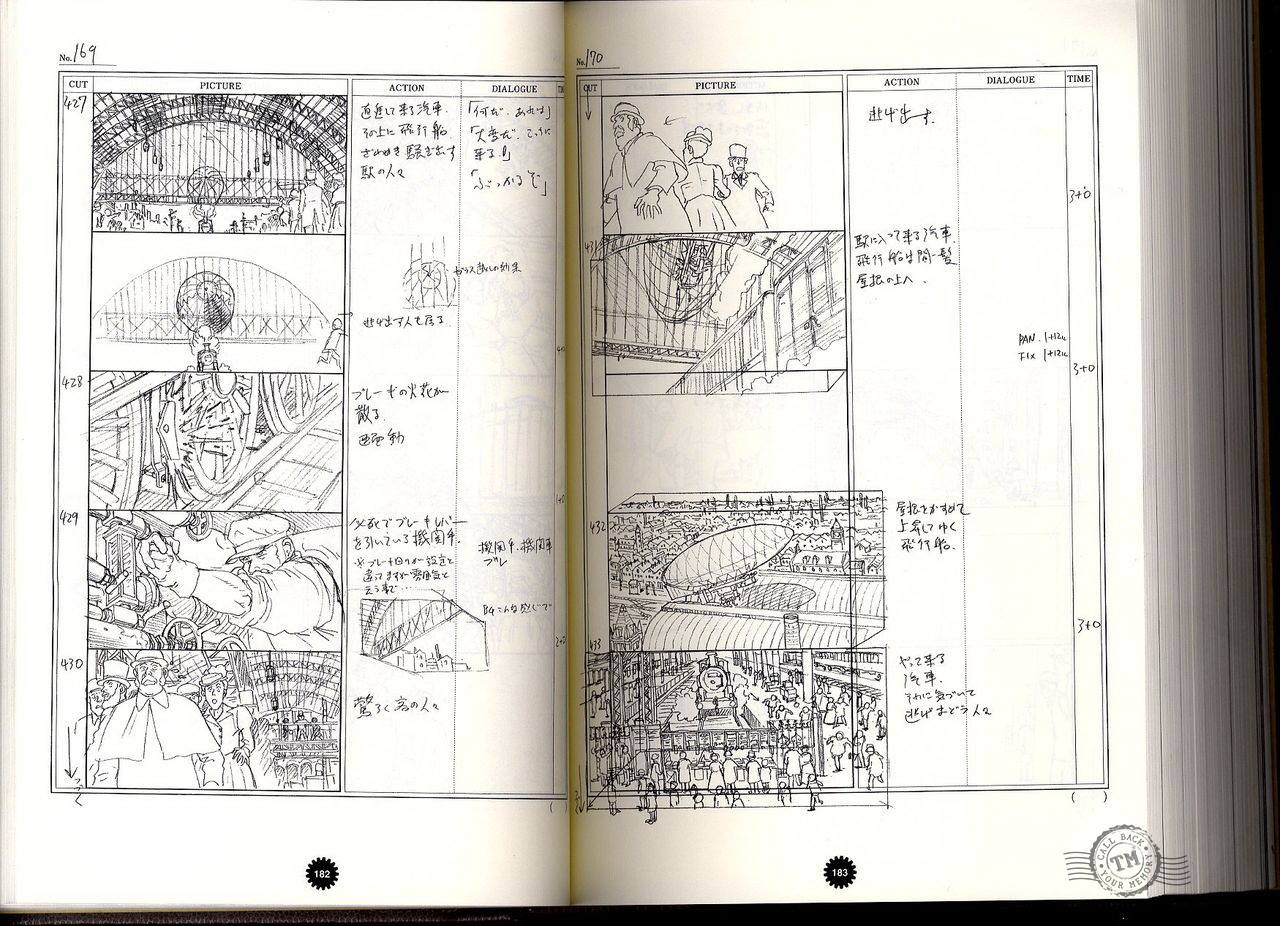 No. 169
CUT
PICTURE
ACTION
DIALOGUE
427
直進して来る汽車.
その上に飛行船
ざわめき騒ぎ出す
駅の人々
「何だ、あれは」
「大変だ、こっちに
来る!」
「ぶつかるぞ」
ガラス越しの効果
逃げ出す人も居る
428
ブレーキの火花が
散る.
429
必死でブレーキレバー
を引いている機関手.
機関手、機関車
ブレ
430
驚く客の人々
つづく
182
No. 170
CUT
PICTURE
ACTION
DIALOGUE
TIME
逃げ出す.
3+0
431
駅に入って来る汽車.
飛行船は間一髪
屋根の上へ.
PAN. 1+12k
FIX 1+12k
3+0
432
屋根をかすめて
上昇してゆく
飛行船.
3+0
433
やって来る
汽車.
それに気づいて
逃げまどう人々
( )
183
CALL BACK
TM
YOUR MEMORY